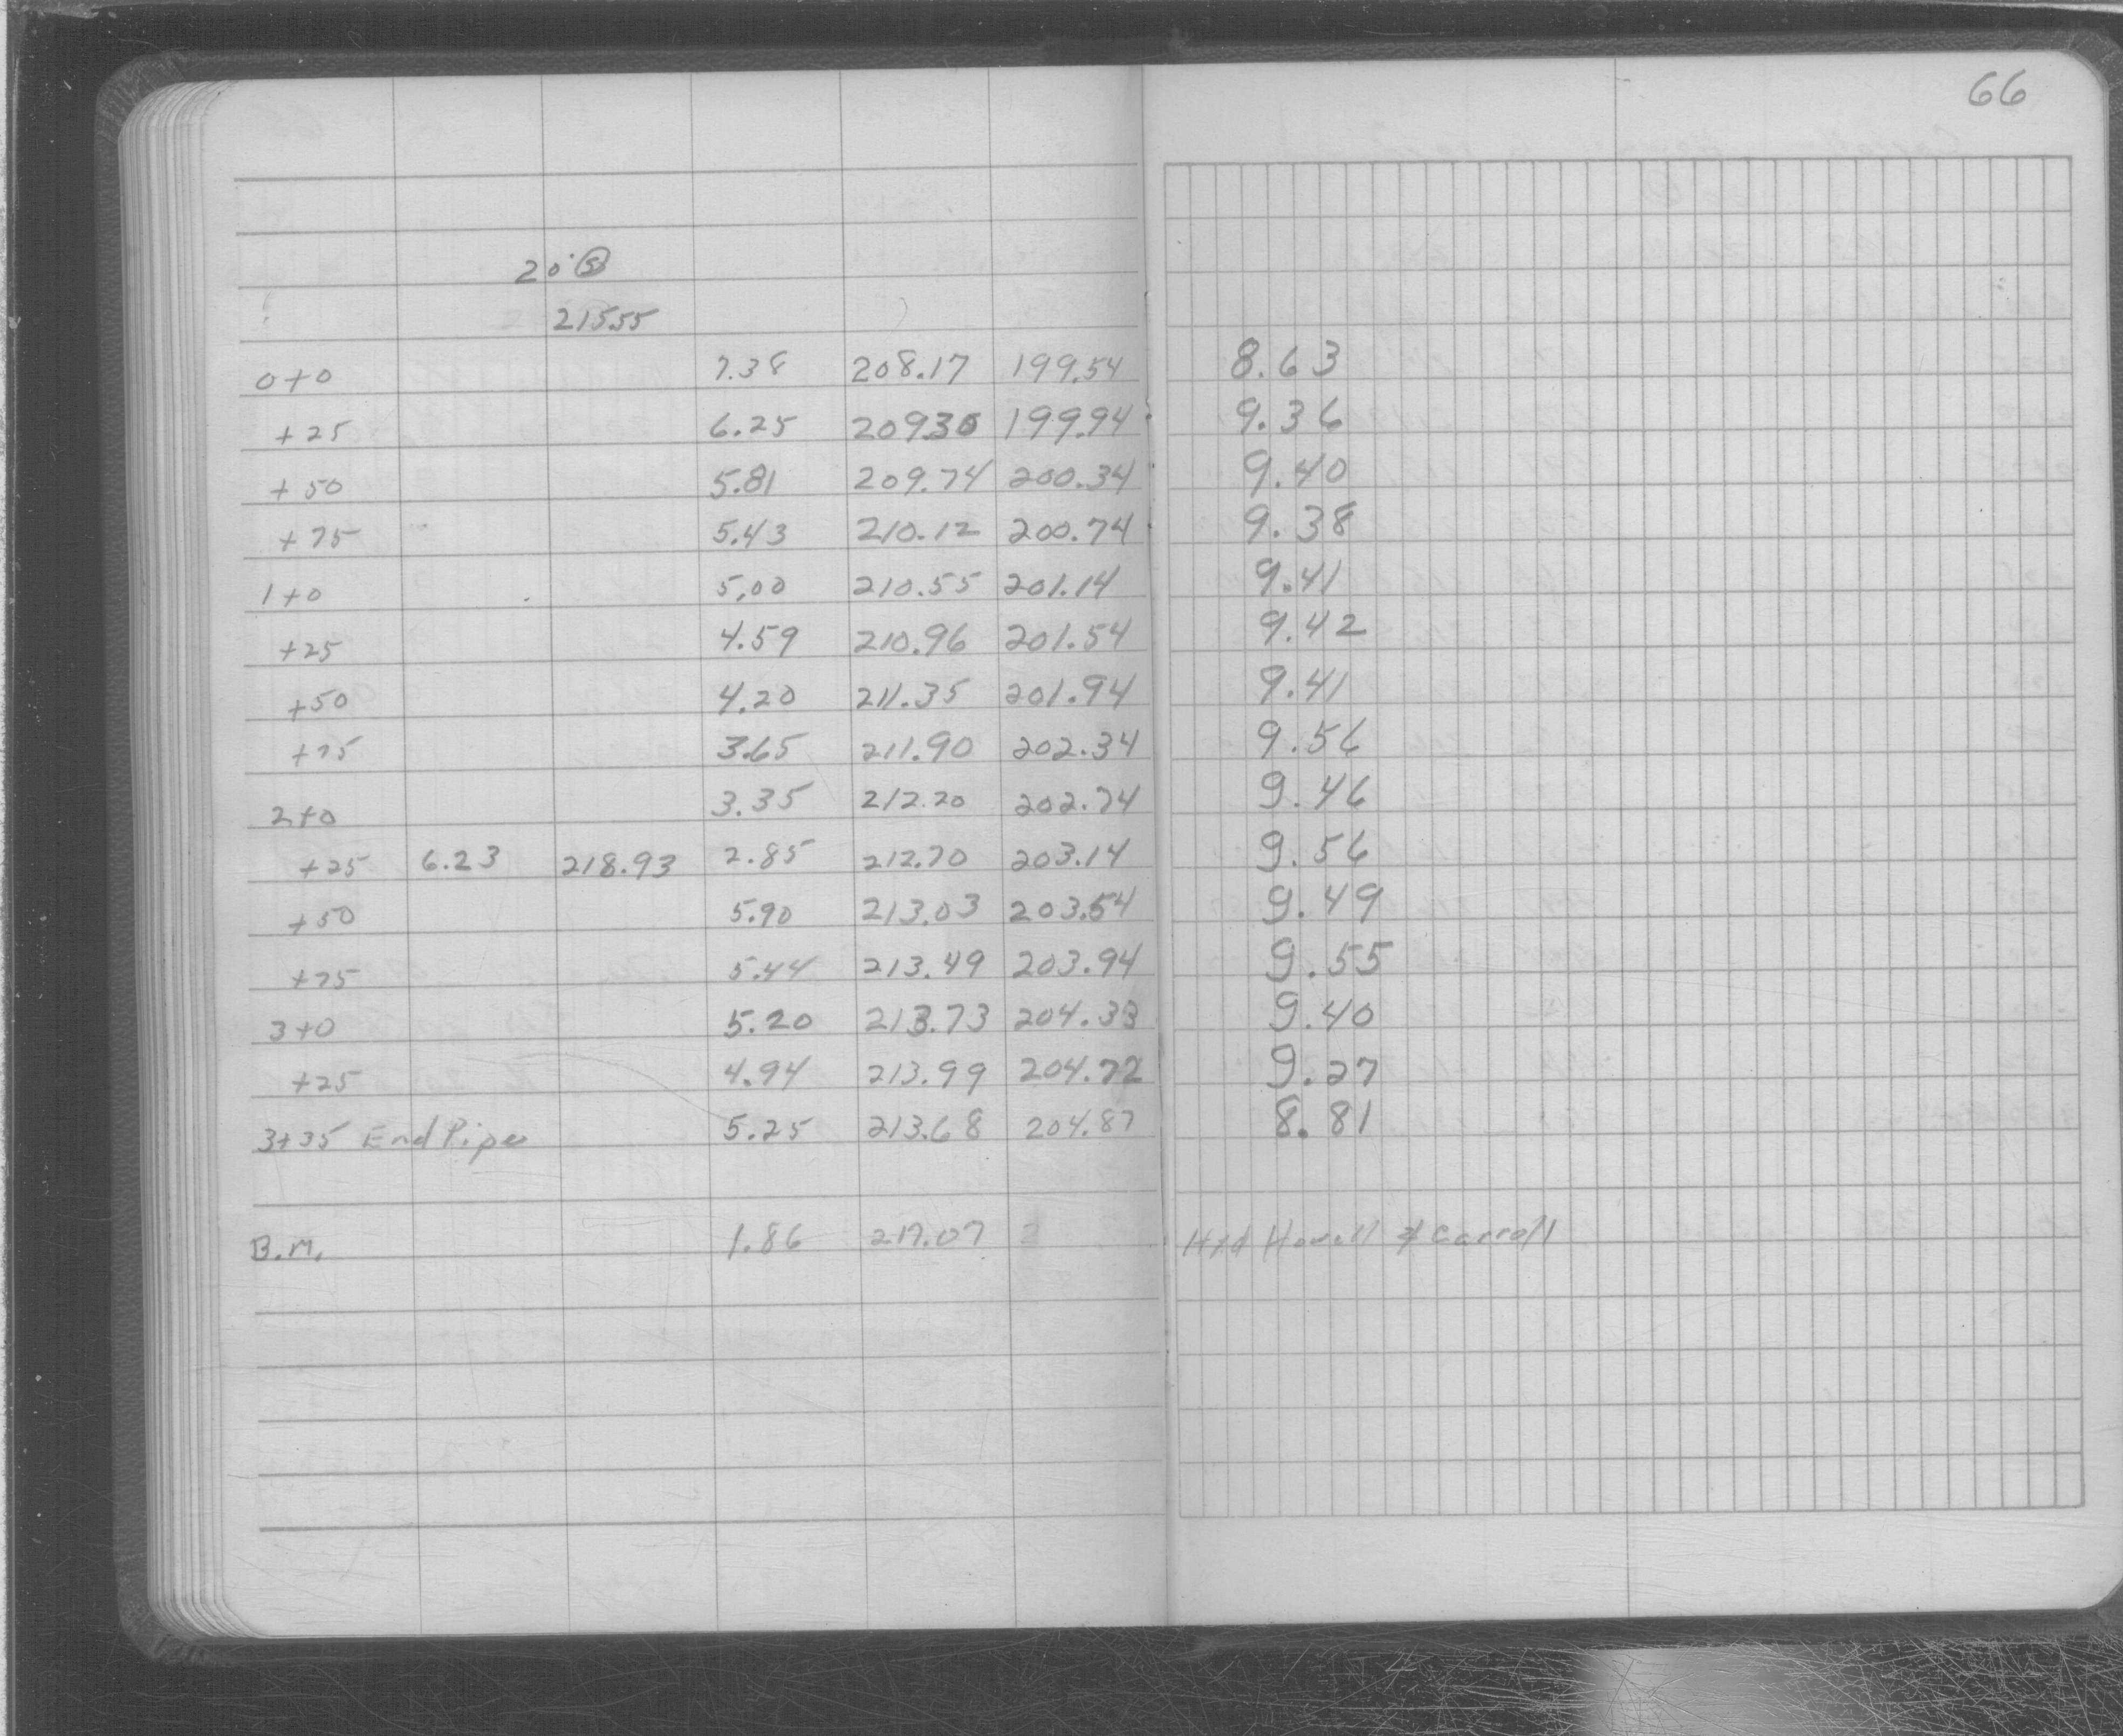 66
20' Ⓢ
215.55
0+0 7.38 208.17 199.54 8.63
+25 6.25 209.30 199.94 9.36
+50 5.81 209.74 200.34 9.40
+75 5.43 210.12 200.74 9.38
1+0 5.00 210.55 201.14 9.41
+25 4.59 210.96 201.54 9.42
+50 4.20 211.35 201.94 9.41
+75 3.65 211.90 202.34 9.56
2+0 3.35 212.20 202.74 9.46
+25 6.23 218.93 2.85 212.70 203.14 9.56
+50 5.90 213.03 203.54 9.49
+75 5.44 213.49 203.94 9.55
3+0 5.20 213.73 204.33 9.40
+25 4.94 213.99 204.72 9.27
3+35 End Pipe 5.25 213.68 204.87 8.81
B.M. 1.86 217.07 Hyd Howell & Carroll